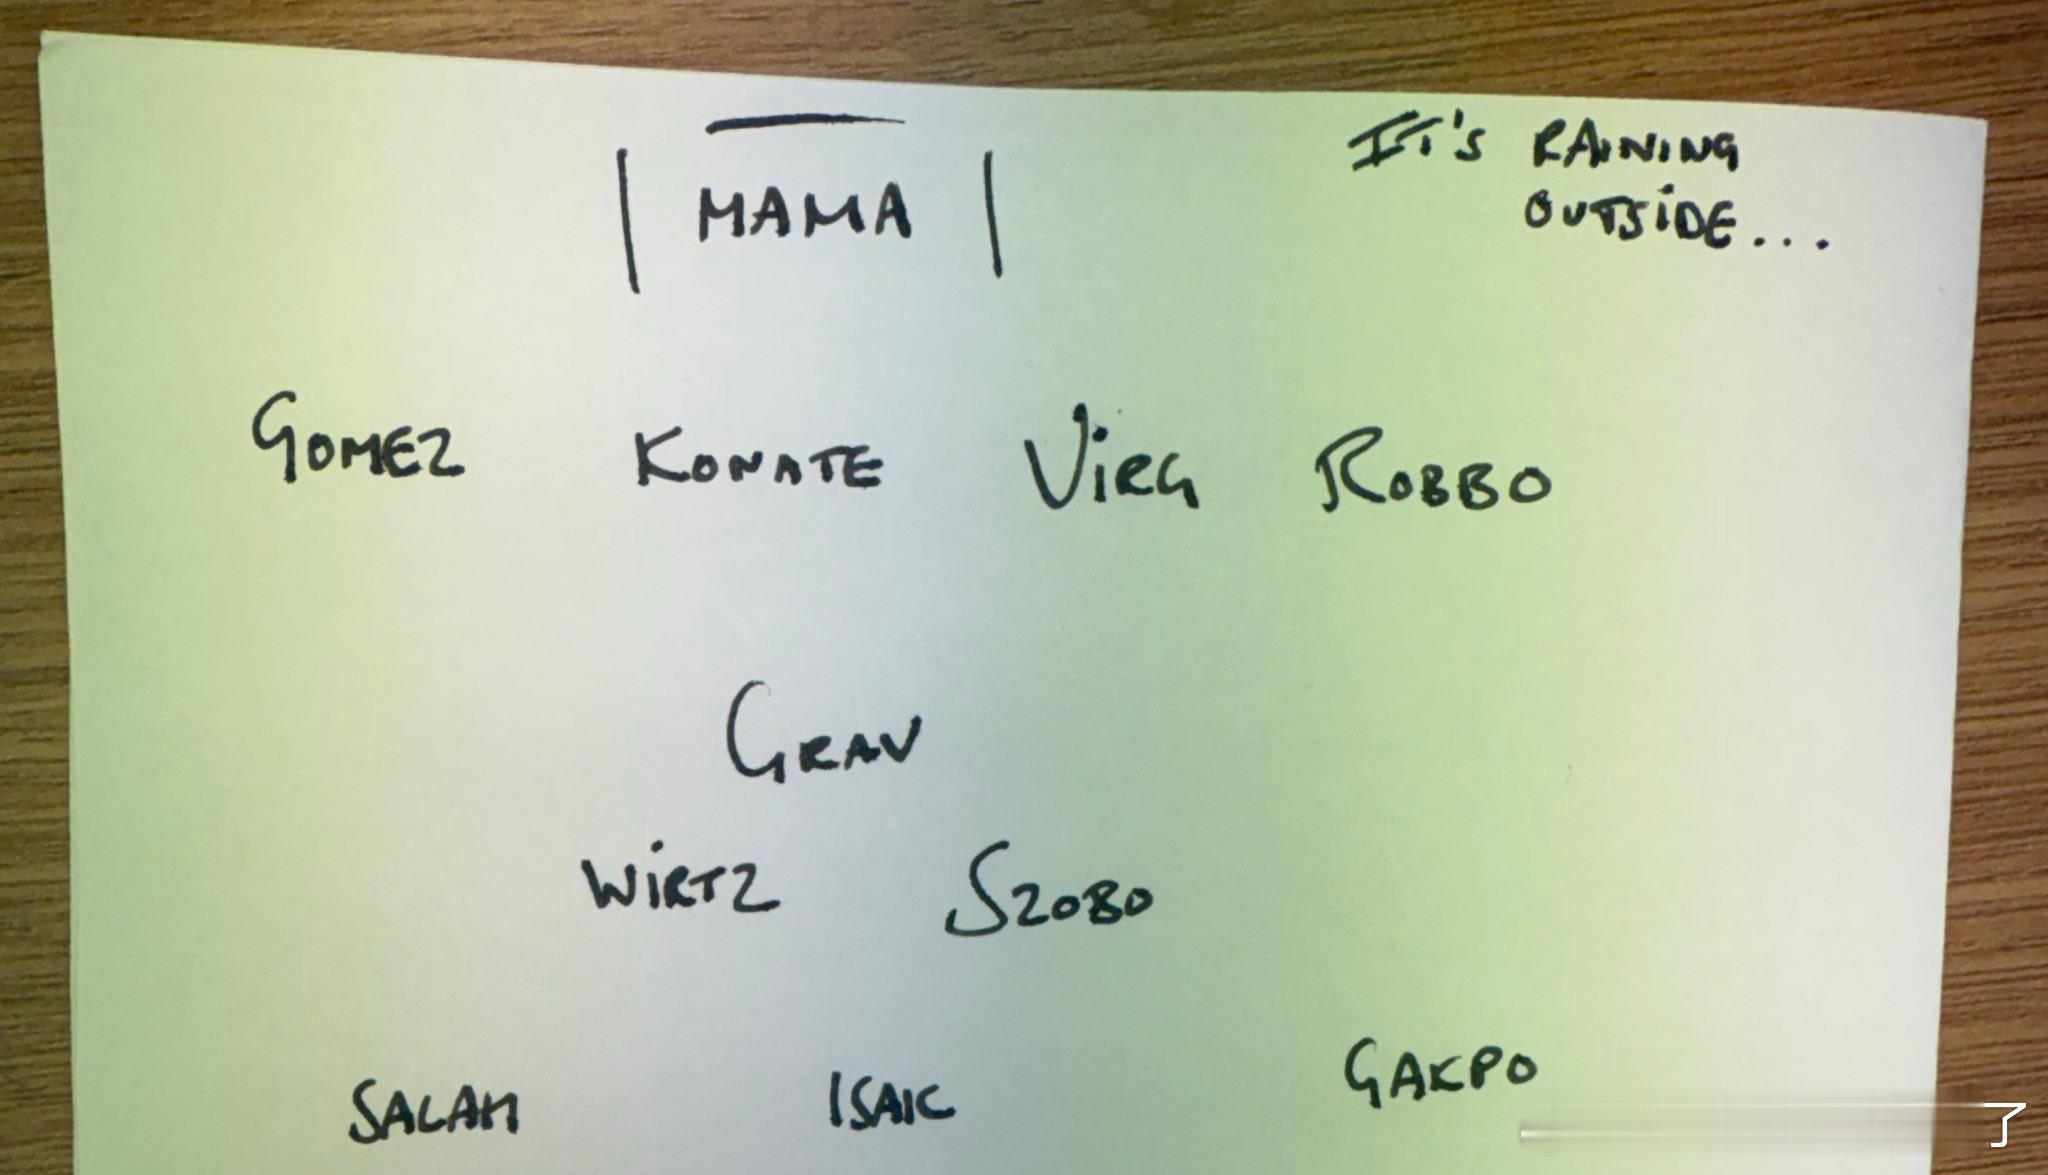 MAMA
IT'S RAINING
OUTSIDE...
GOMEZ KONATE VIRG ROBBO
GRAV
WIRTZ SZOBO
SALAH ISAK GAKPO
了